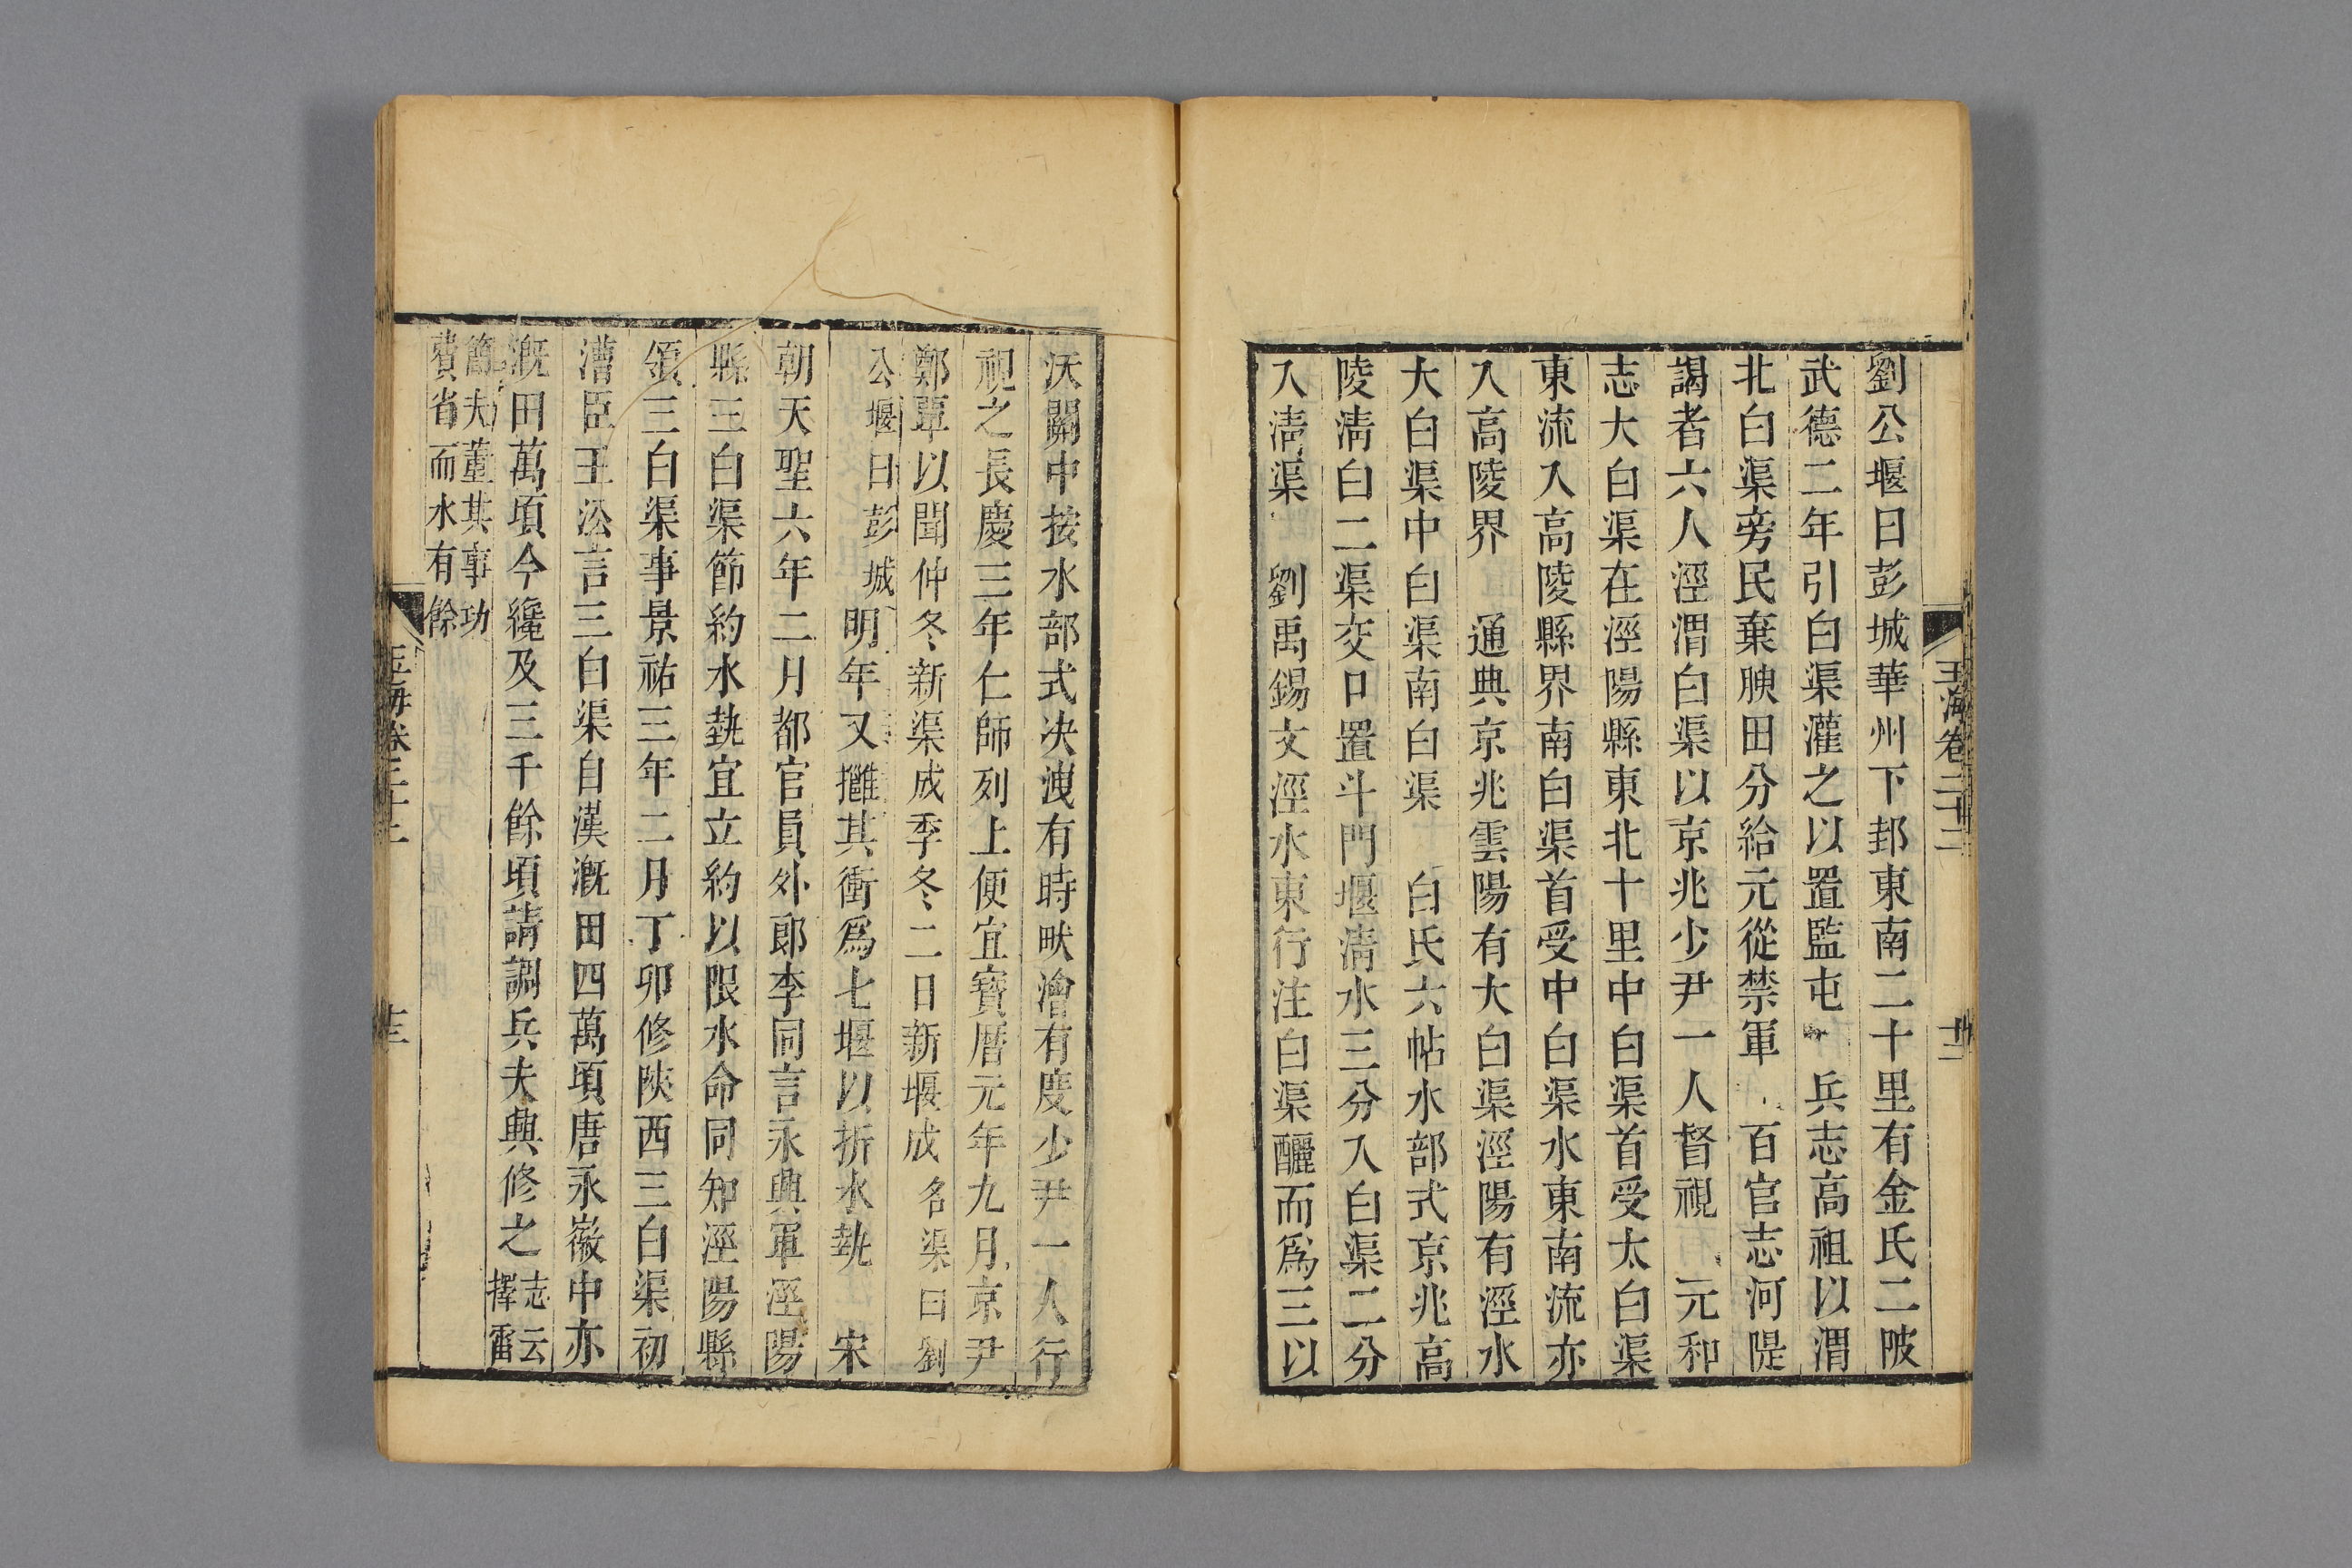 玉海卷二十二
十二
劉公堰曰彭城華州下邽東南二十里有金氏二陂
武德二年引白渠灌之以置監屯　兵志高祖以渭
北白渠旁民棄腴田分給元從禁軍　百官志河隄
謁者六人涇渭白渠以京兆少尹一人督視　元和
志大白渠在涇陽縣東北十里中白渠首受太白渠
東流入高陵縣界南白渠首受中白渠水東南流亦
入高陵界　通典京兆雲陽有大白渠涇陽有涇水
大白渠中白渠南白渠　白氏六帖水部式京兆高
陵淸白二渠交口置斗門堰淸水三分入白渠二分
入淸渠　劉禹錫文涇水東行注白渠釃而爲三以
沃關中按水部式决洩有時畎澮有度少尹一人行
視之長慶三年仁師列上便宜寶曆元年九月京尹
鄭覃以聞仲冬新渠成季冬二日新堰成名渠曰劉
公堰曰彭城明年又攡其衝爲七堰以折水埶　宋
朝天聖六年二月都官員外郎李同言永興軍涇陽
縣三白渠節約水埶宜立約以限水命同知涇陽縣
領三白渠事景祐三年二月丁卯修陝西三白渠初
漕臣王㳂言三白渠自漢漑田四萬頃唐永徽中亦
漑田萬頃今纔及三千餘頃請調兵夫興修之志云
擇雷
簡夫董其事功
費省而水有餘
玉海卷二十二
十三